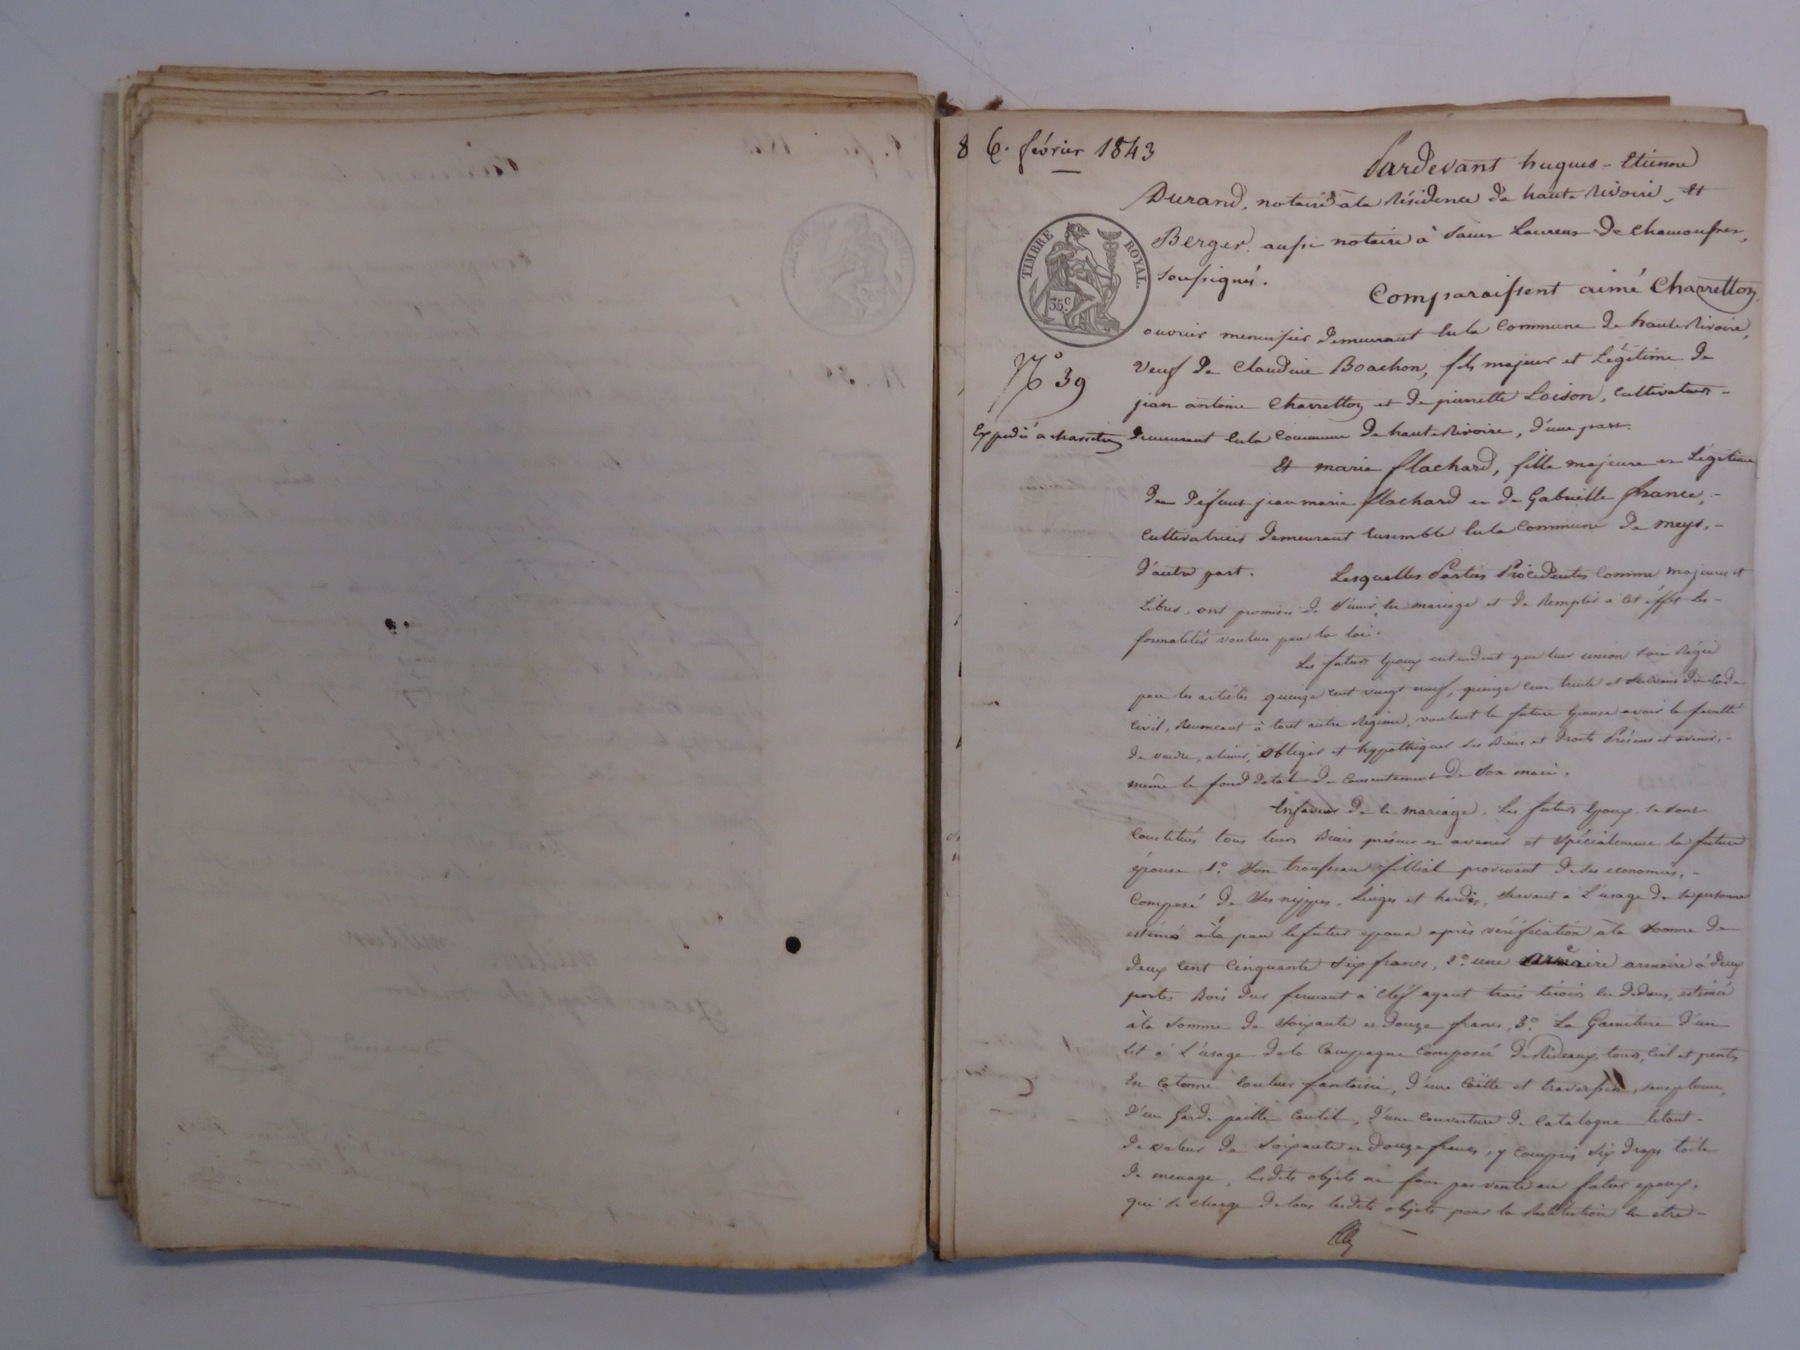 8 6. février 1843
Pardevant hugues-Etienne
Durand, notaire à la Résidence de haute Rivoire, Et
Berger, aussi notaire à Saint Laurent De chamousset,
soussignés.
TIMBRE ROYAL.
35c
Comparaissent aimé Charretton,
ouvrier menuisier demeurant En la commune de haute Rivoire,
No 39
veuf de Claudine Boachon, fils majeur et Légitime de
jean antoine Charretton et de pierrette Loison, cultivateurs
Expédié à charretton
demeurant En la Commune de haute Rivoire, d'une part.
Et marie flachard, fille majeure et Légitime
de défunt jean marie flachard et de Gabrielle france,
cultivatrices demeurant Ensemble En la Commune de meys,
d'autre part. Lesquelles Parties Procédentes Comme majeures et
Libres, ont promis de s'unir en mariage et de Remplir à cet effet les
formalités voulues par la loi.
Les futurs Epoux entendent que leur union soit Régie
par les articles quinze cent vingt neuf, quinze cent trente et suivans du Code
Civil, Renoncant à tout autre Régime, voulant la future Epouse avoir la faculté
de vendre, aliéner, obliger et hypothéquer ses Biens et Droits Présens et avenir,
même le fond dotal du consentement de son mari.
En faveur de ce mariage, Les futurs Epoux se sont
Constitués tous leurs Biens présens et avenir et spécialement la future
épouse 1o. Son trousseau fillial provenant de ses economies,
Composé de ses nippes, Linges et hardes, servant à L'usage de sa personne
estimé à la par le futur epoux après vérification à la somme de
deux cent cinquante six francs, 2o. une armoire à deux
portes Bois dur fermant à clef ayant trois tiroirs en dedans, estimée
à la somme de soixante et douze francs, 3o. La Garniture d'un
lit à L'usage de la Campagne composée de Rideaux, tours, ciel et pentes
En cotonne couleur fantaisie, d'une coëtte et traversin, sans plume,
d'un garde paille coutil, d'une couverture de Catalogne le tout
de valeur de soixante et douze francs, y compris six draps toile
de menage, Lesdits objets ne font pas vente au futur epoux,
qui se charge de tous lesdits objets pour la Restitution en etre